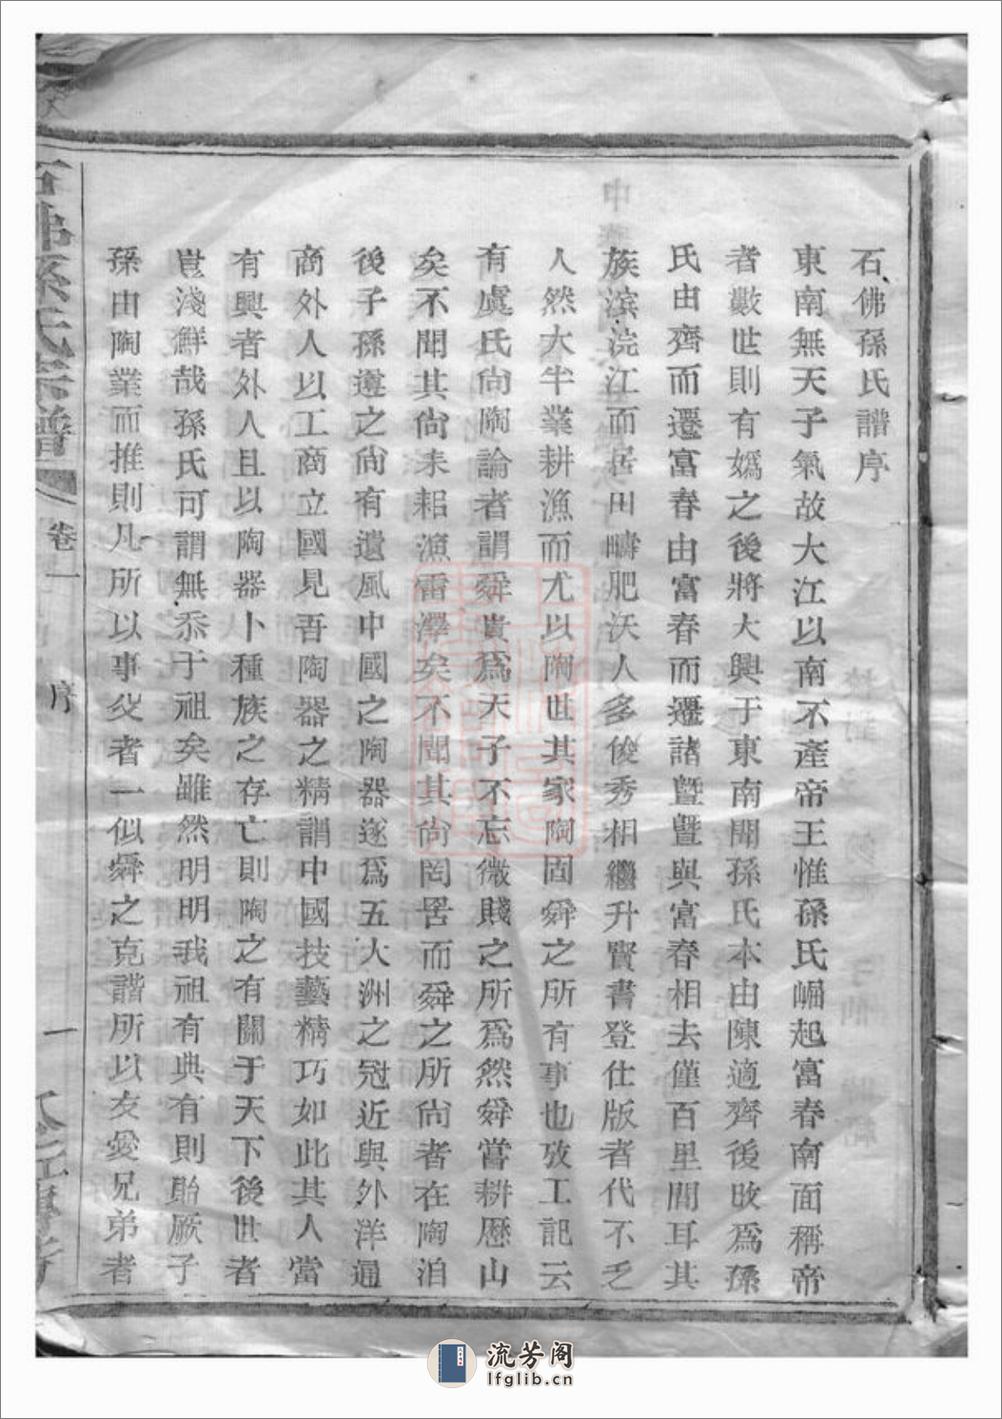 石佛孫氏譜序
東南無天子氣故大江以南不產帝王惟孫氏崛起富春南面稱帝
者數世則有媯之後將大興于東南聞孫氏本由陳適齊後改爲孫
氏由齊而遷富春由富春而遷諸暨暨與富春相去僅百里間耳其
族濱浣江而居田疇肥沃人多俊秀相繼升賢書登仕版者代不乏
人然大半業耕漁而尤以陶世其家陶固舜之所有事也攷工記云
有虞氏尙陶論者謂舜貴爲天子不忘微賤之所爲然舜嘗耕歷山
矣不聞其尙耒耜漁雷澤矣不聞其尙罔罟而舜之所尙者在陶洎
後子孫遵之尙有遺風中國之陶器遂爲五大洲之冠近與外洋通
商外人以工商立國見吾陶器之精謂中國技藝精巧如此其人當
有興者外人且以陶器卜種族之存亡則陶之有關于天下後世者
豈淺鮮哉孫氏可謂無忝于祖矣雖然明明我祖有典有則貽厥子
孫由陶業而推則凡所以事父者一似舜之克諧所以友愛兄弟者
石佛孫氏宗譜
卷一
序
一
流芳阁
lfglib.cn